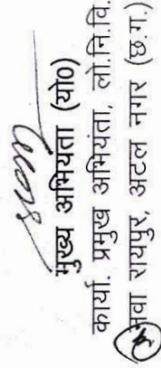 मुख्य अभियंता (यो०)
कार्या. प्रमुख अभियंता, लो.नि.वि.
नवा रायपुर, अटल नगर (छ.ग.)